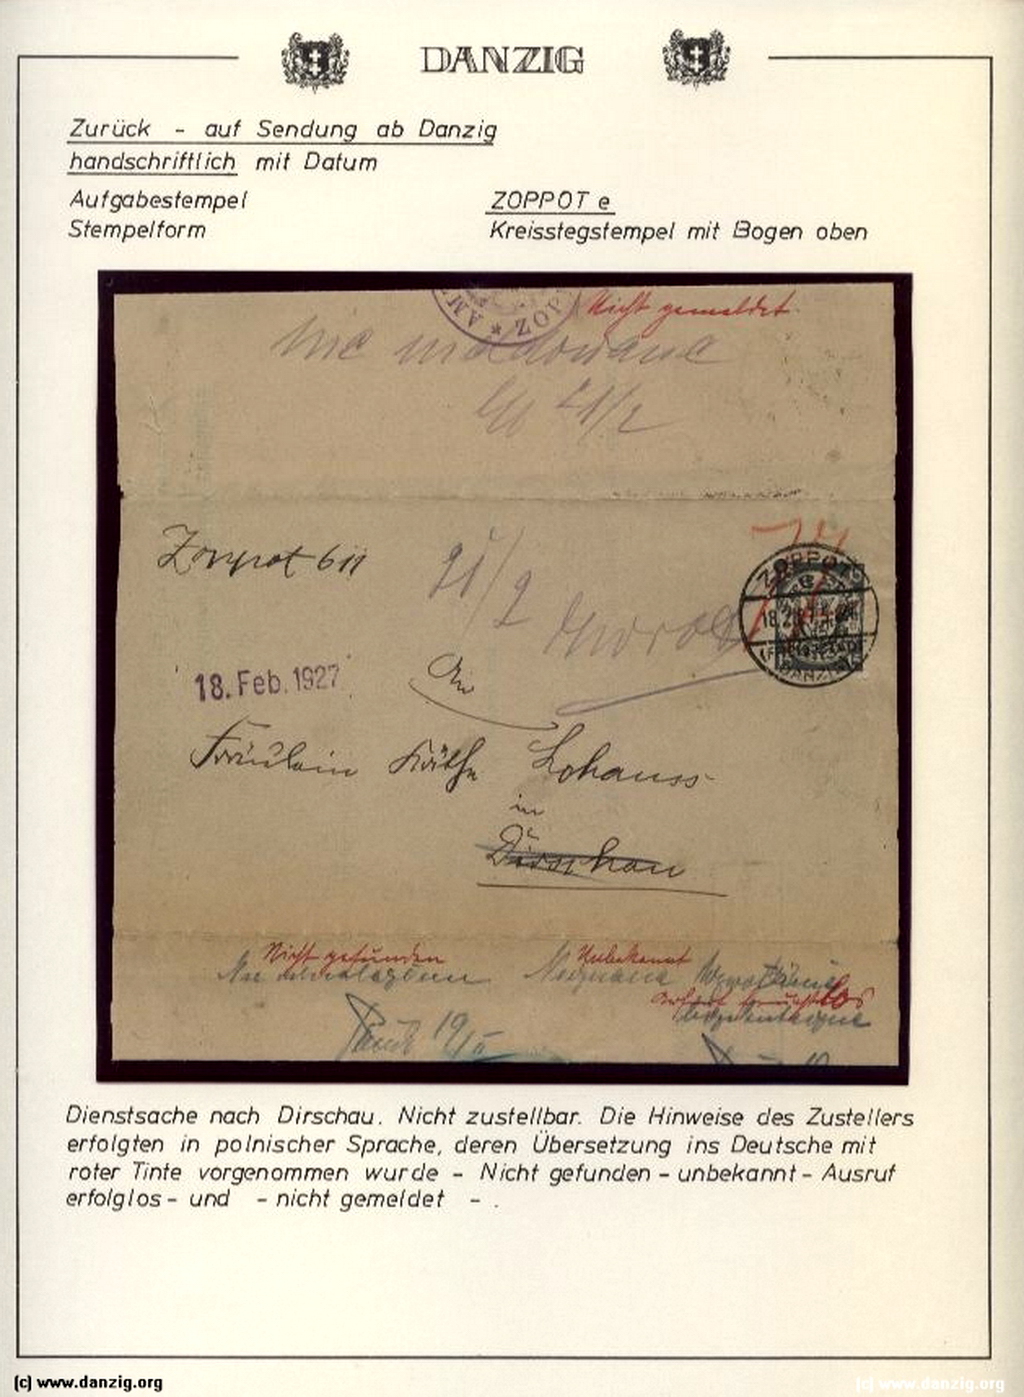 DANZIG
Zurück - auf Sendung ab Danzig
handschriftlich mit Datum
Aufgabestempel ZOPPOT e
Stempelform Kreisstegstempel mit Bogen oben
AM * ZOP
Nicht gemeldet.
nie meldowane
21/2
Zoppot 611
21/2
Zwrot
ZOPPOT
18.2.27
DANZIG
18. Feb. 1927
An
Fräulein Käthe Lohauss
in
Dirschau
Nicht gefunden Unbekannt
Nieznana
los
19/II
Dienstsache nach Dirschau. Nicht zustellbar. Die Hinweise des Zustellers
erfolgten in polnischer Sprache, deren Übersetzung ins Deutsche mit
roter Tinte vorgenommen wurde - Nicht gefunden - unbekannt - Ausruf
erfolglos - und - nicht gemeldet - .
(c) www.danzig.org (c) www.danzig.org